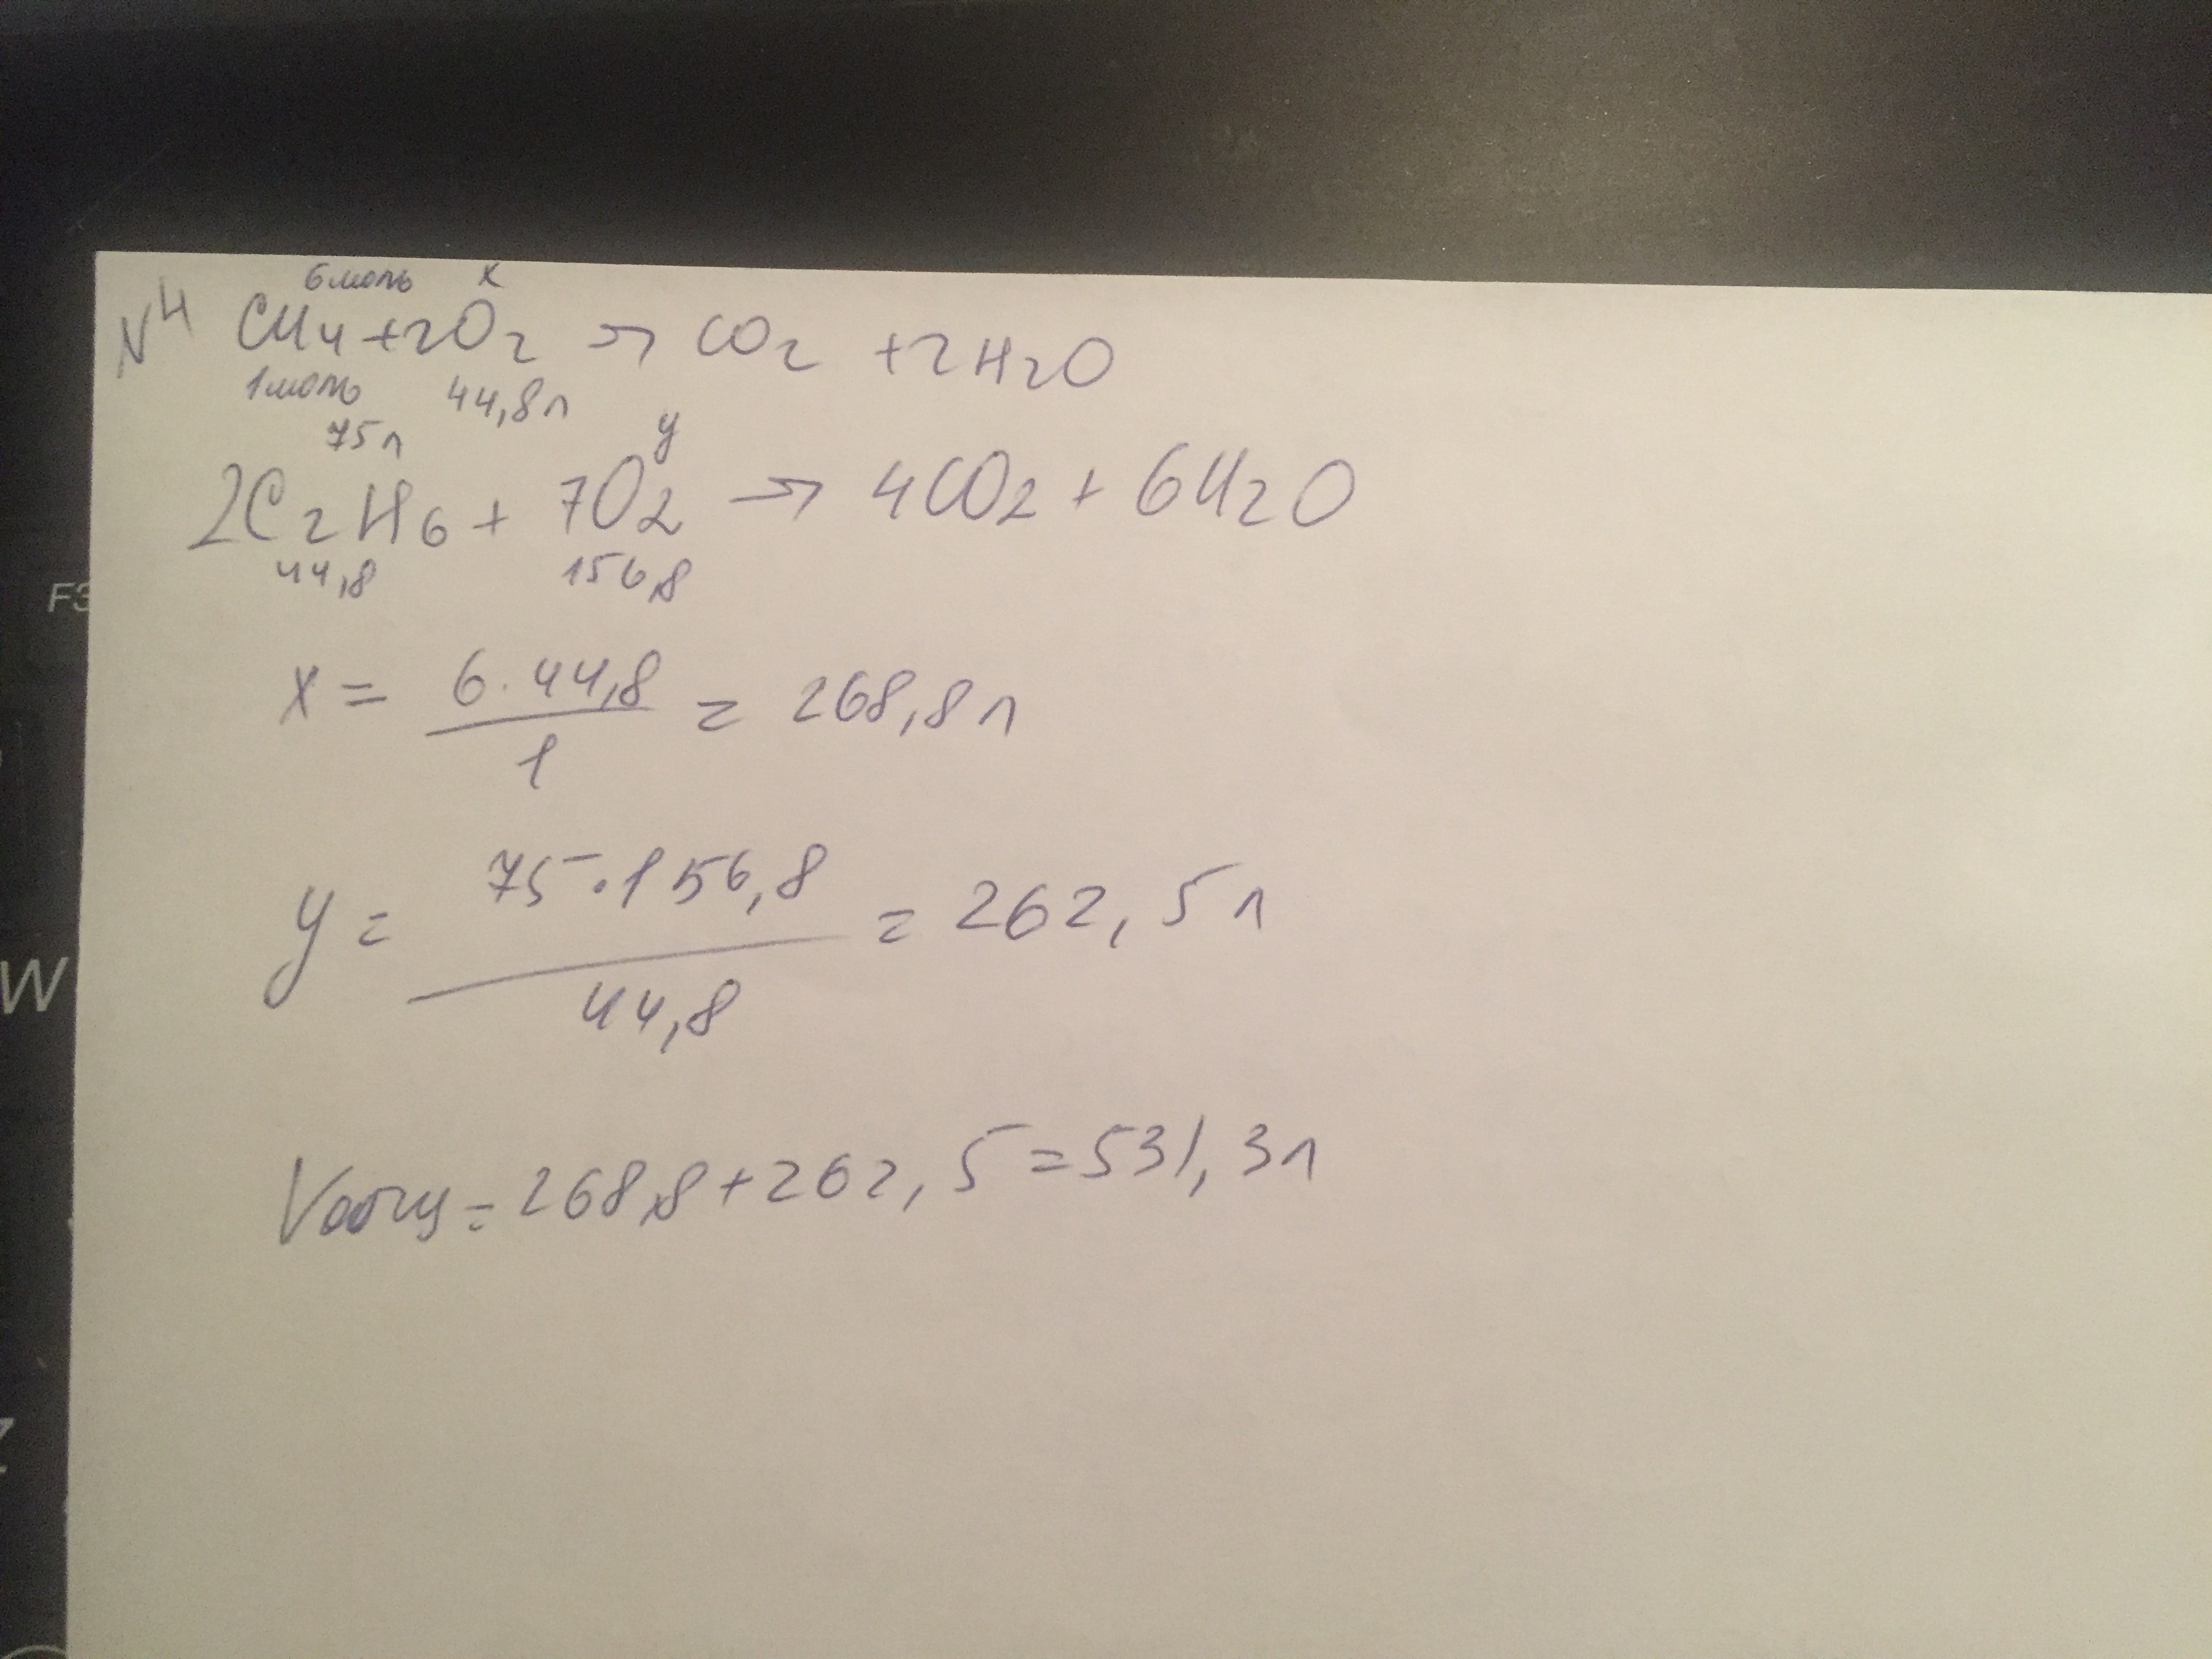 6 моль x
N4 CH4 + 2O2 → CO2 + 2H2O
1 моль 44,8 л
75 л y
2C2H6 + 7O2 → 4CO2 + 6H2O
44,8 156,8
F3
x = 6·44,8 / 1 = 268,8 л
y = 75·156,8 / 44,8 = 262,5 л
W
Vобщ = 268,8 + 262,5 = 531,3 л